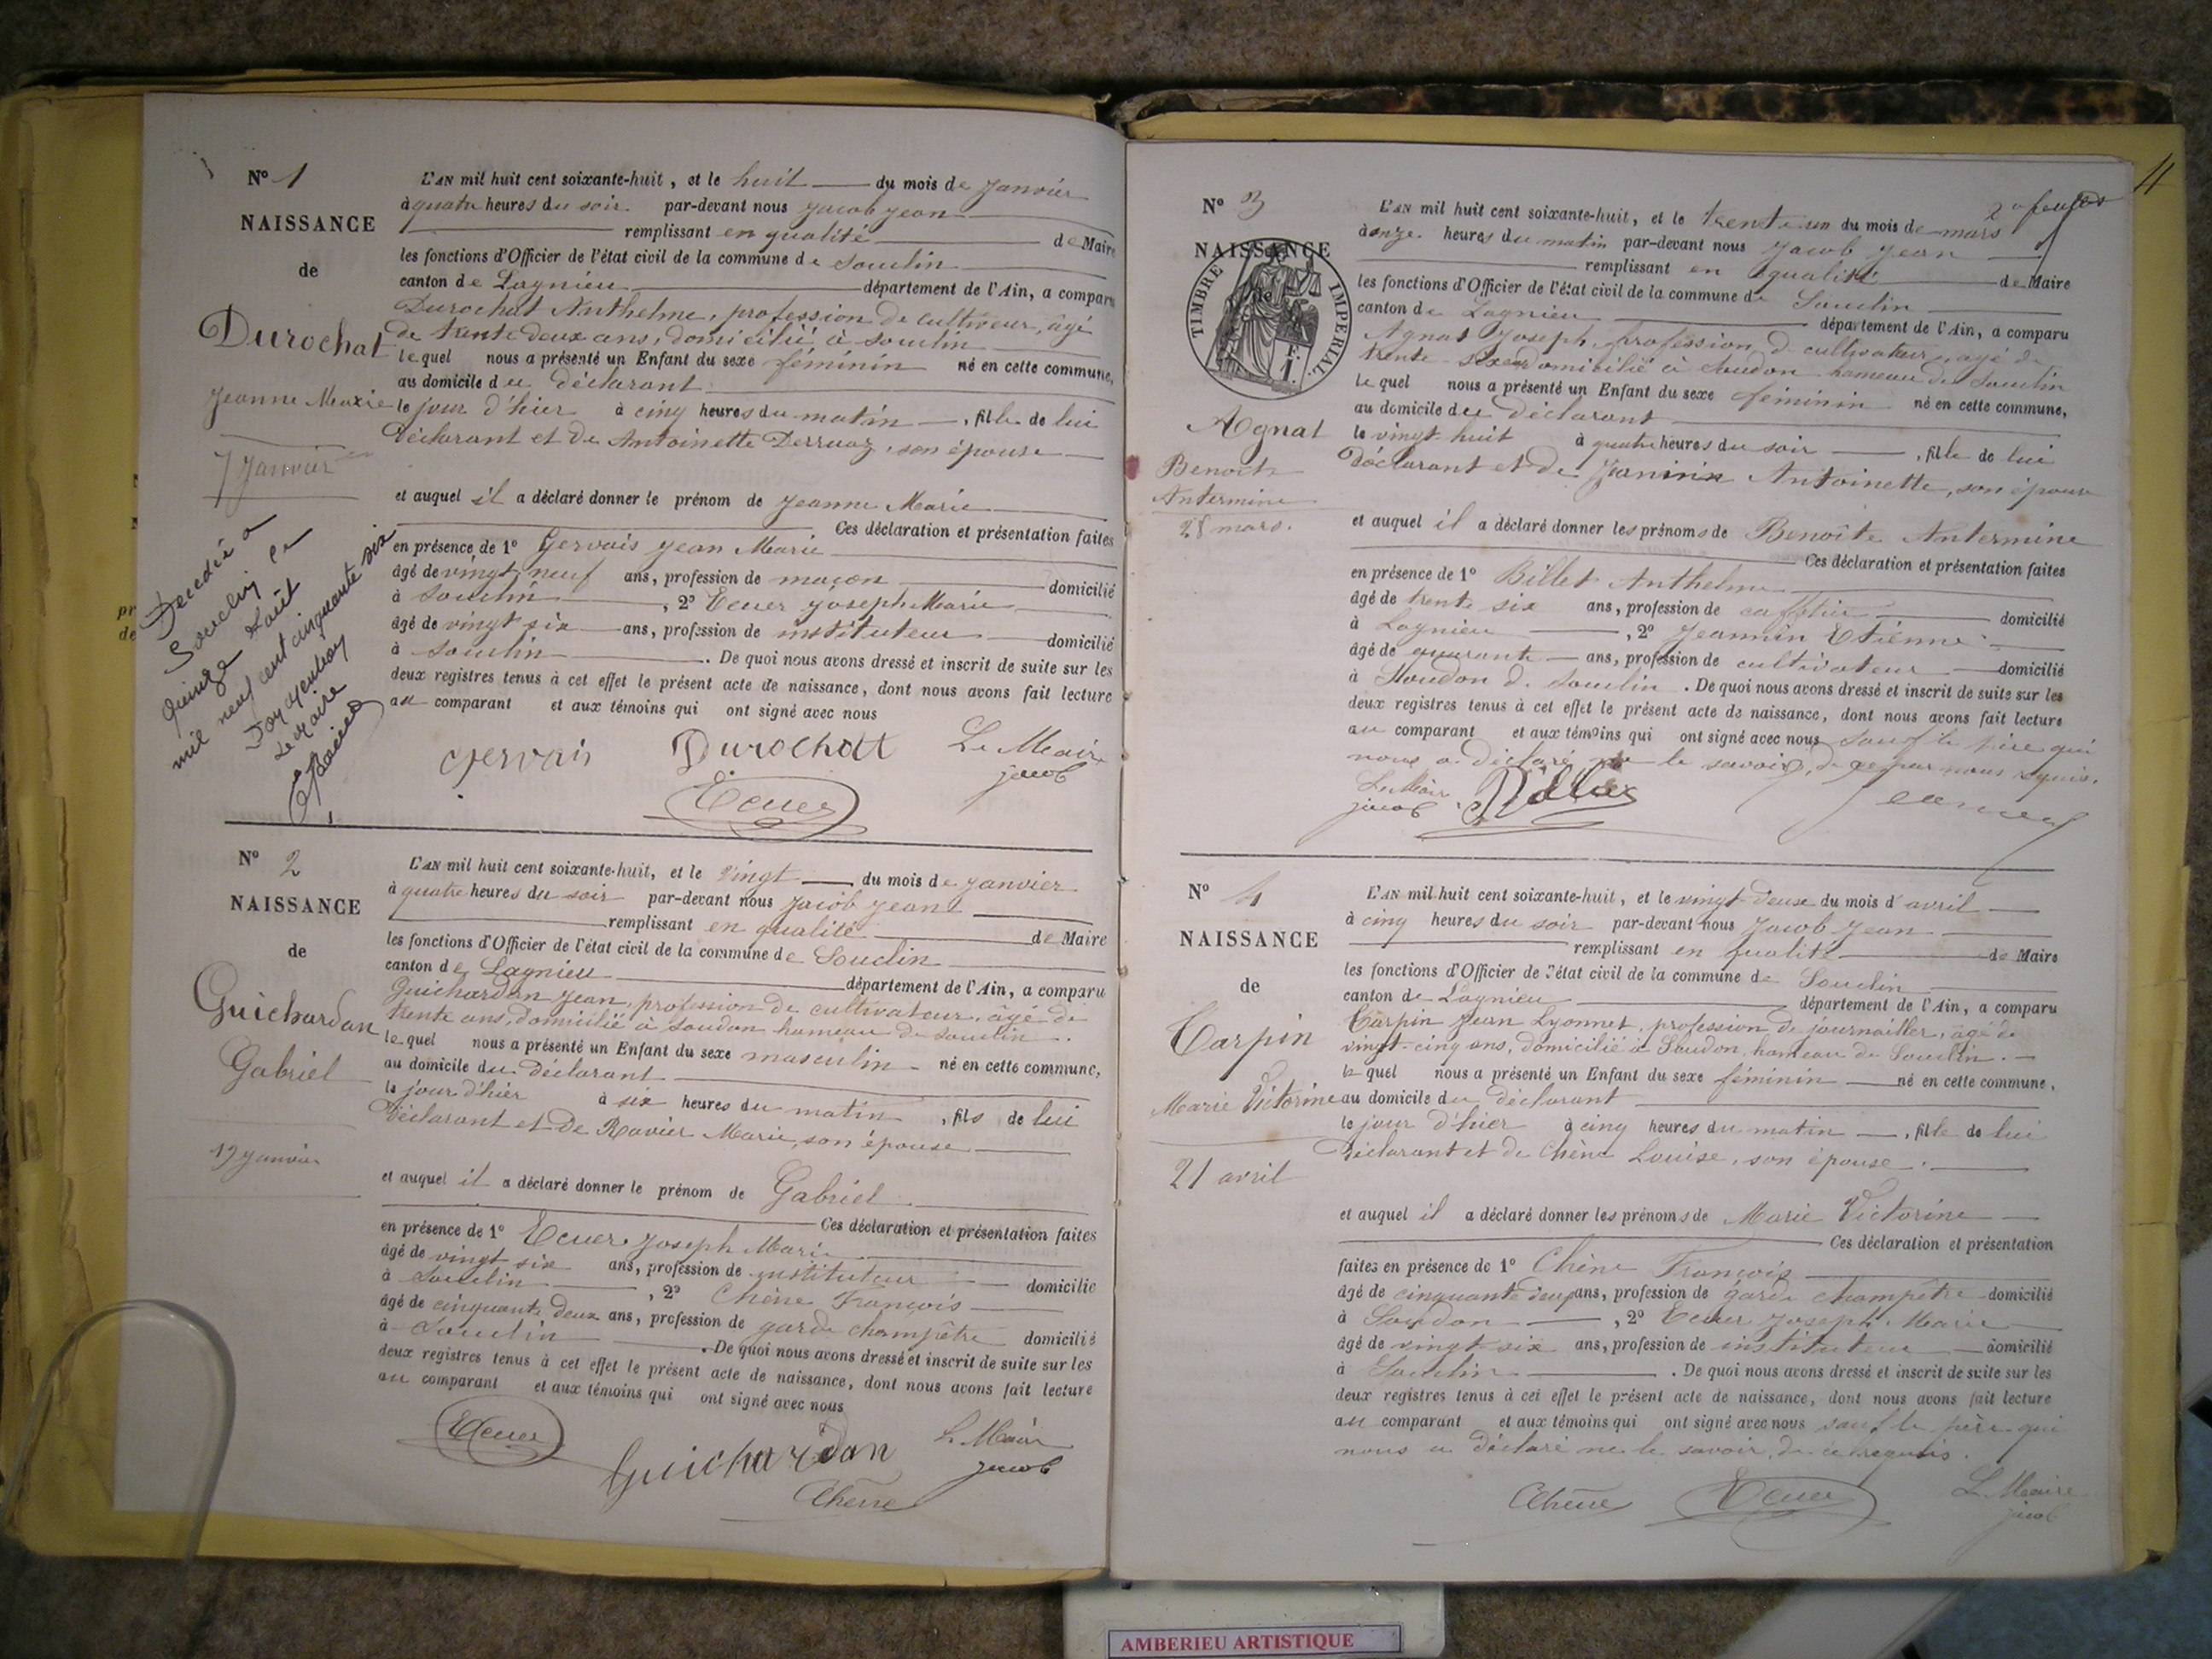 N° 1
NAISSANCE
de
Durochat
Jeanne Marie
7 Janvier
Décédée à
Souclin le
quinze Août
mil neuf cent cinquante six
Le Maire
L'AN mil huit cent soixante-huit, et le huit du mois de Janvier
à quatre heures du soir par-devant nous Jacob Jean
remplissant en qualité de Maire
les fonctions d'Officier de l'état civil de la commune de Souclin
canton de Lagnieu département de l'Ain, a comparu
Durochat Anthelme, profession de cultiveur, âgé
de trente deux ans, domicilié à Souclin
lequel nous a présenté un Enfant du sexe féminin né en cette commune,
au domicile du déclarant
le jour d'hier à cinq heures du matin, fille de lui
déclarant et de Antoinette Derruaz, son épouse
et auquel il a déclaré donner le prénom de Jeanne Marie
Ces déclaration et présentation faites
en présence de 1° Gervais Jean Marie
âgé de vingt neuf ans, profession de maçon domicilié
à Souclin, 2° Ecuer Joseph Marie
âgé de vingt six ans, profession de instituteur domicilié
à Souclin. De quoi nous avons dressé et inscrit de suite sur les
deux registres tenus à cet effet le présent acte de naissance, dont nous avons fait lecture
au comparant et aux témoins qui ont signé avec nous
Gervais Durochat Le Maire
Jacob
Ecuer
N° 2
NAISSANCE
de
Guichardan
Gabriel
19 Janvier
L'AN mil huit cent soixante-huit, et le vingt du mois de Janvier
à quatre heures du soir par-devant nous Jacob Jean
remplissant en qualité de Maire
les fonctions d'Officier de l'état civil de la commune de Souclin
canton de Lagnieu département de l'Ain, a comparu
Guichardan Jean, profession de cultivateur, âgé de
trente ans, domicilié à Soudon hameau de Souclin.
lequel nous a présenté un Enfant du sexe masculin né en cette commune,
au domicile du déclarant
le jour d'hier à six heures du matin, fils de lui
déclarant et de Ravier Marie, son épouse
et auquel il a déclaré donner le prénom de Gabriel
Ces déclaration et présentation faites
en présence de 1° Ecuer Joseph Marie
âgé de vingt six ans, profession de instituteur domicilié
à Souclin, 2° Chêne François
âgé de cinquante deux ans, profession de garde champêtre domicilié
à Souclin. De quoi nous avons dressé et inscrit de suite sur les
deux registres tenus à cet effet le présent acte de naissance, dont nous avons fait lecture
au comparant et aux témoins qui ont signé avec nous
Ecuer Guichardan Le Maire
Jacob
Chêne
11
N° 3
NAISSANCE
de
TIMBRE IMPERIAL
1 F.
Agnat
Benoite
Antermine
28 mars.
L'AN mil huit cent soixante-huit, et le trente un du mois de mars
à onze heures du matin par-devant nous Jacob Jean
remplissant en qualité de Maire
les fonctions d'Officier de l'état civil de la commune de Souclin
canton de Lagnieu département de l'Ain, a comparu
Agnat Joseph, profession de cultivateur, âgé de
trente six domicilié à Soudon hameau de Souclin
lequel nous a présenté un Enfant du sexe féminin né en cette commune,
au domicile du déclarant
le vingt huit à quatre heures du soir, fille de lui
déclarant et de Jeannin Antoinette, son épouse
et auquel il a déclaré donner les prénoms de Benoîte Antermine
Ces déclaration et présentation faites
en présence de 1° Billet Anthelme
âgé de trente six ans, profession de caffetier domicilié
à Lagnieu, 2° Jeannin Etienne
âgé de quarante ans, profession de cultivateur domicilié
à Soudon d. Souclin. De quoi nous avons dressé et inscrit de suite sur les
deux registres tenus à cet effet le présent acte de naissance, dont nous avons fait lecture
au comparant et aux témoins qui ont signé avec nous sauf le père qui
nous a déclaré ne le savoir, de ce par nous requis.
Le Maire
Jacob
N° 4
NAISSANCE
de
Carpin
Marie Victorine
21 avril
L'AN mil huit cent soixante-huit, et le vingt deux du mois d'avril
à cinq heures du soir par-devant nous Jacob Jean
remplissant en qualité de Maire
les fonctions d'Officier de l'état civil de la commune de Souclin
canton de Lagnieu département de l'Ain, a comparu
Carpin Jean Lyonnet, profession de journailler, âgé de
vingt-cinq ans, domicilié à Soudon, hameau de Souclin.
lequel nous a présenté un Enfant du sexe féminin né en cette commune,
au domicile du déclarant
le jour d'hier à cinq heures du matin, fille de lui
déclarant et de Chêne Louise, son épouse.
et auquel il a déclaré donner les prénoms de Marie Victorine
Ces déclaration et présentation
faites en présence de 1° Chêne François
âgé de cinquante deux ans, profession de garde champêtre domicilié
à Soudon, 2° Ecuer Joseph Marie
âgé de vingt-six ans, profession de instituteur domicilié
à Souclin. De quoi nous avons dressé et inscrit de suite sur les
deux registres tenus à cet effet le présent acte de naissance, dont nous avons fait lecture
au comparant et aux témoins qui ont signé avec nous sauf le père qui
nous a déclaré ne le savoir, de ce requis.
Chêne Ecuer Le Maire
Jacob
AMBERIEU ARTISTIQUE